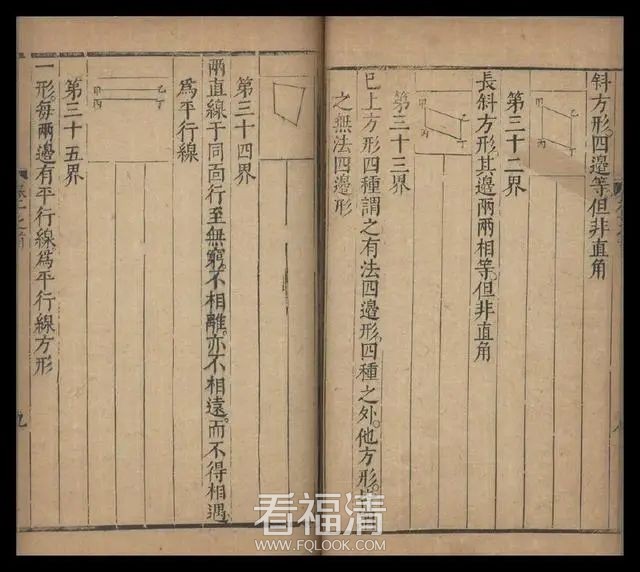 斜方形四邊等但非直角
第三十二界
長斜方形其邊兩兩相等但非直角
甲 乙
丙 丁
第三十三界
已上方形四種謂之有法四邊形四種之外他方形
之無法四邊形
第三十四界
兩直線于同面行至無窮不相離亦不相遠而不得相遇
為平行線
甲 乙
丙 丁
第三十五界
一形每兩邊有平行線為平行線方形
九
看福清
WWW.FQLOOK.COM